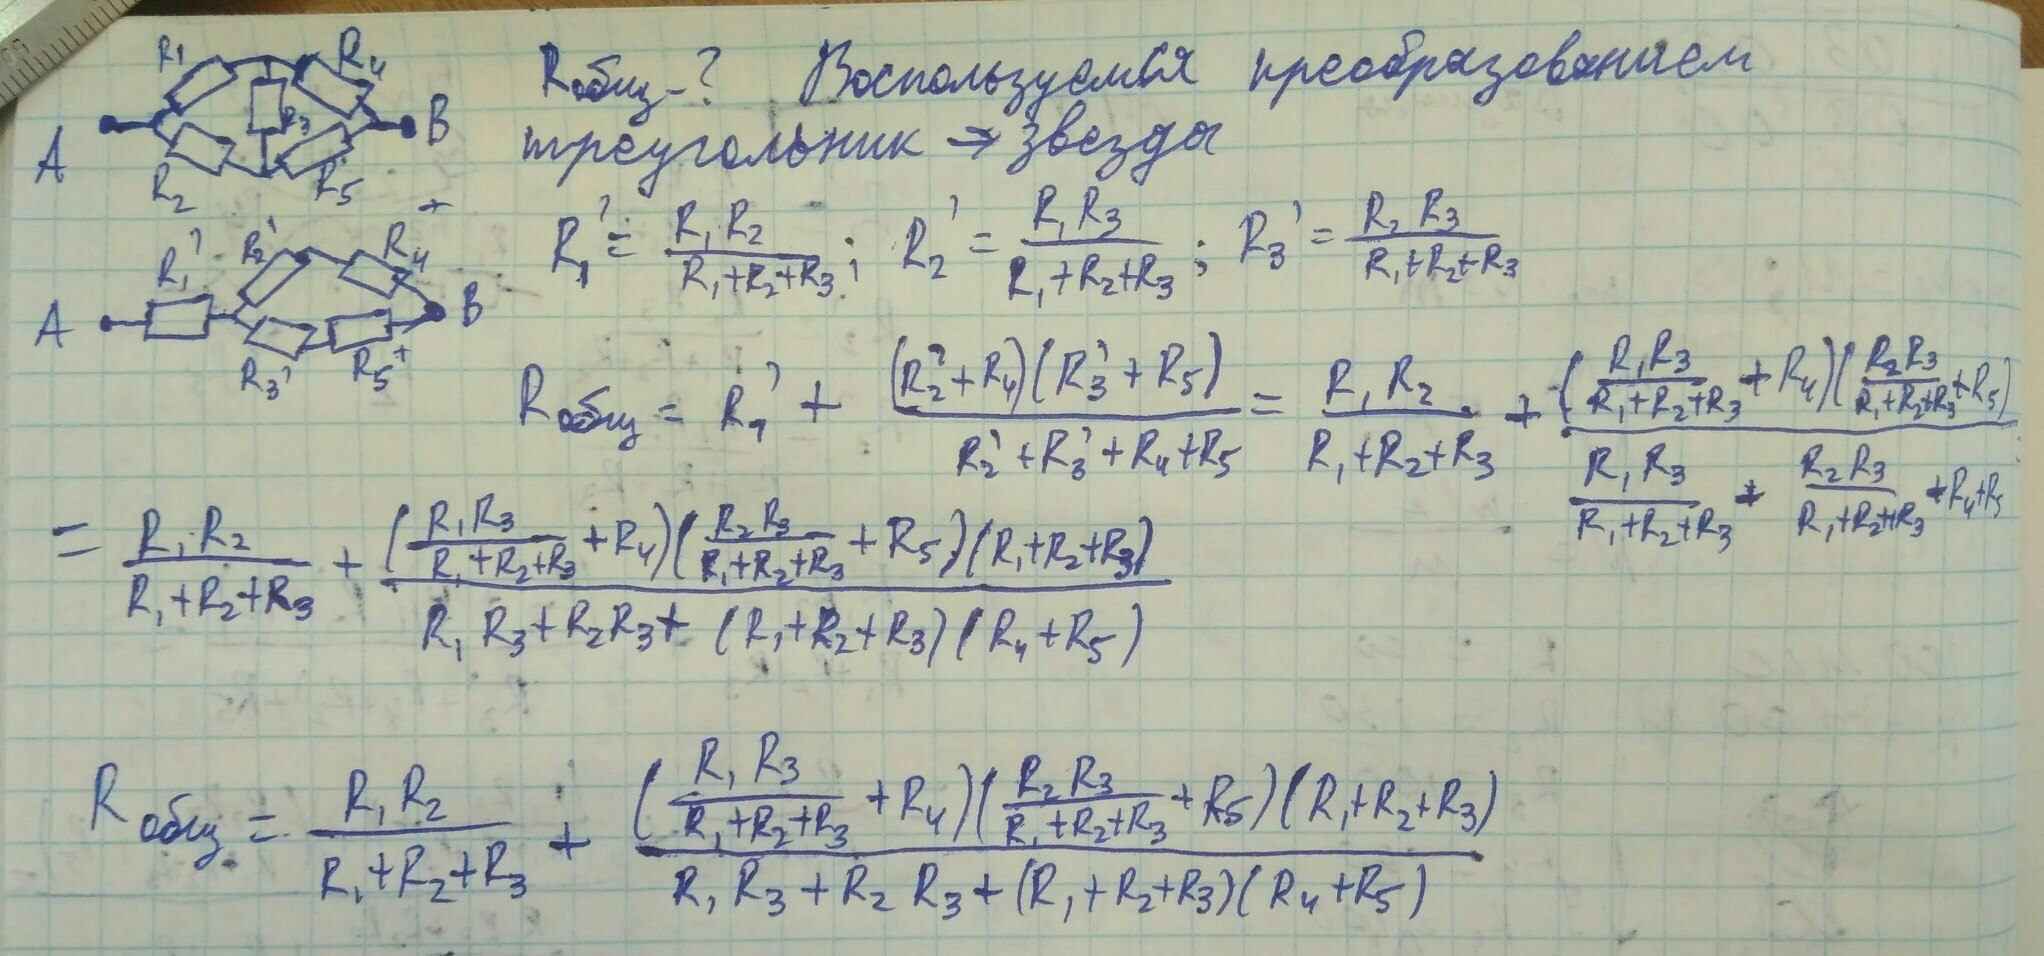 R1 R4
Rобщ-? Воспользуемся преобразованием
A R3 B
треугольник → звезды
R2 R5
R1' = R1R2 / (R1+R2+R3); R2' = R1R3 / (R1+R2+R3); R3' = R2R3 / (R1+R2+R3)
R1' R2' R4
A B
R3' R5
Rобщ = R1' + (R2'+R4)(R3'+R5) / (R2'+R3'+R4+R5) = R1R2 / (R1+R2+R3) + (R1R3 / (R1+R2+R3) + R4)(R2R3 / (R1+R2+R3) + R5) / (R1R3 / (R1+R2+R3) + R2R3 / (R1+R2+R3) + R4+R5)
= R1R2 / (R1+R2+R3) + (R1R3 / (R1+R2+R3) + R4)(R2R3 / (R1+R2+R3) + R5)(R1+R2+R3) / (R1R3+R2R3+(R1+R2+R3)(R4+R5))
Rобщ = R1R2 / (R1+R2+R3) + (R1R3 / (R1+R2+R3) + R4)(R2R3 / (R1+R2+R3) + R5)(R1+R2+R3) / (R1R3+R2R3+(R1+R2+R3)(R4+R5))